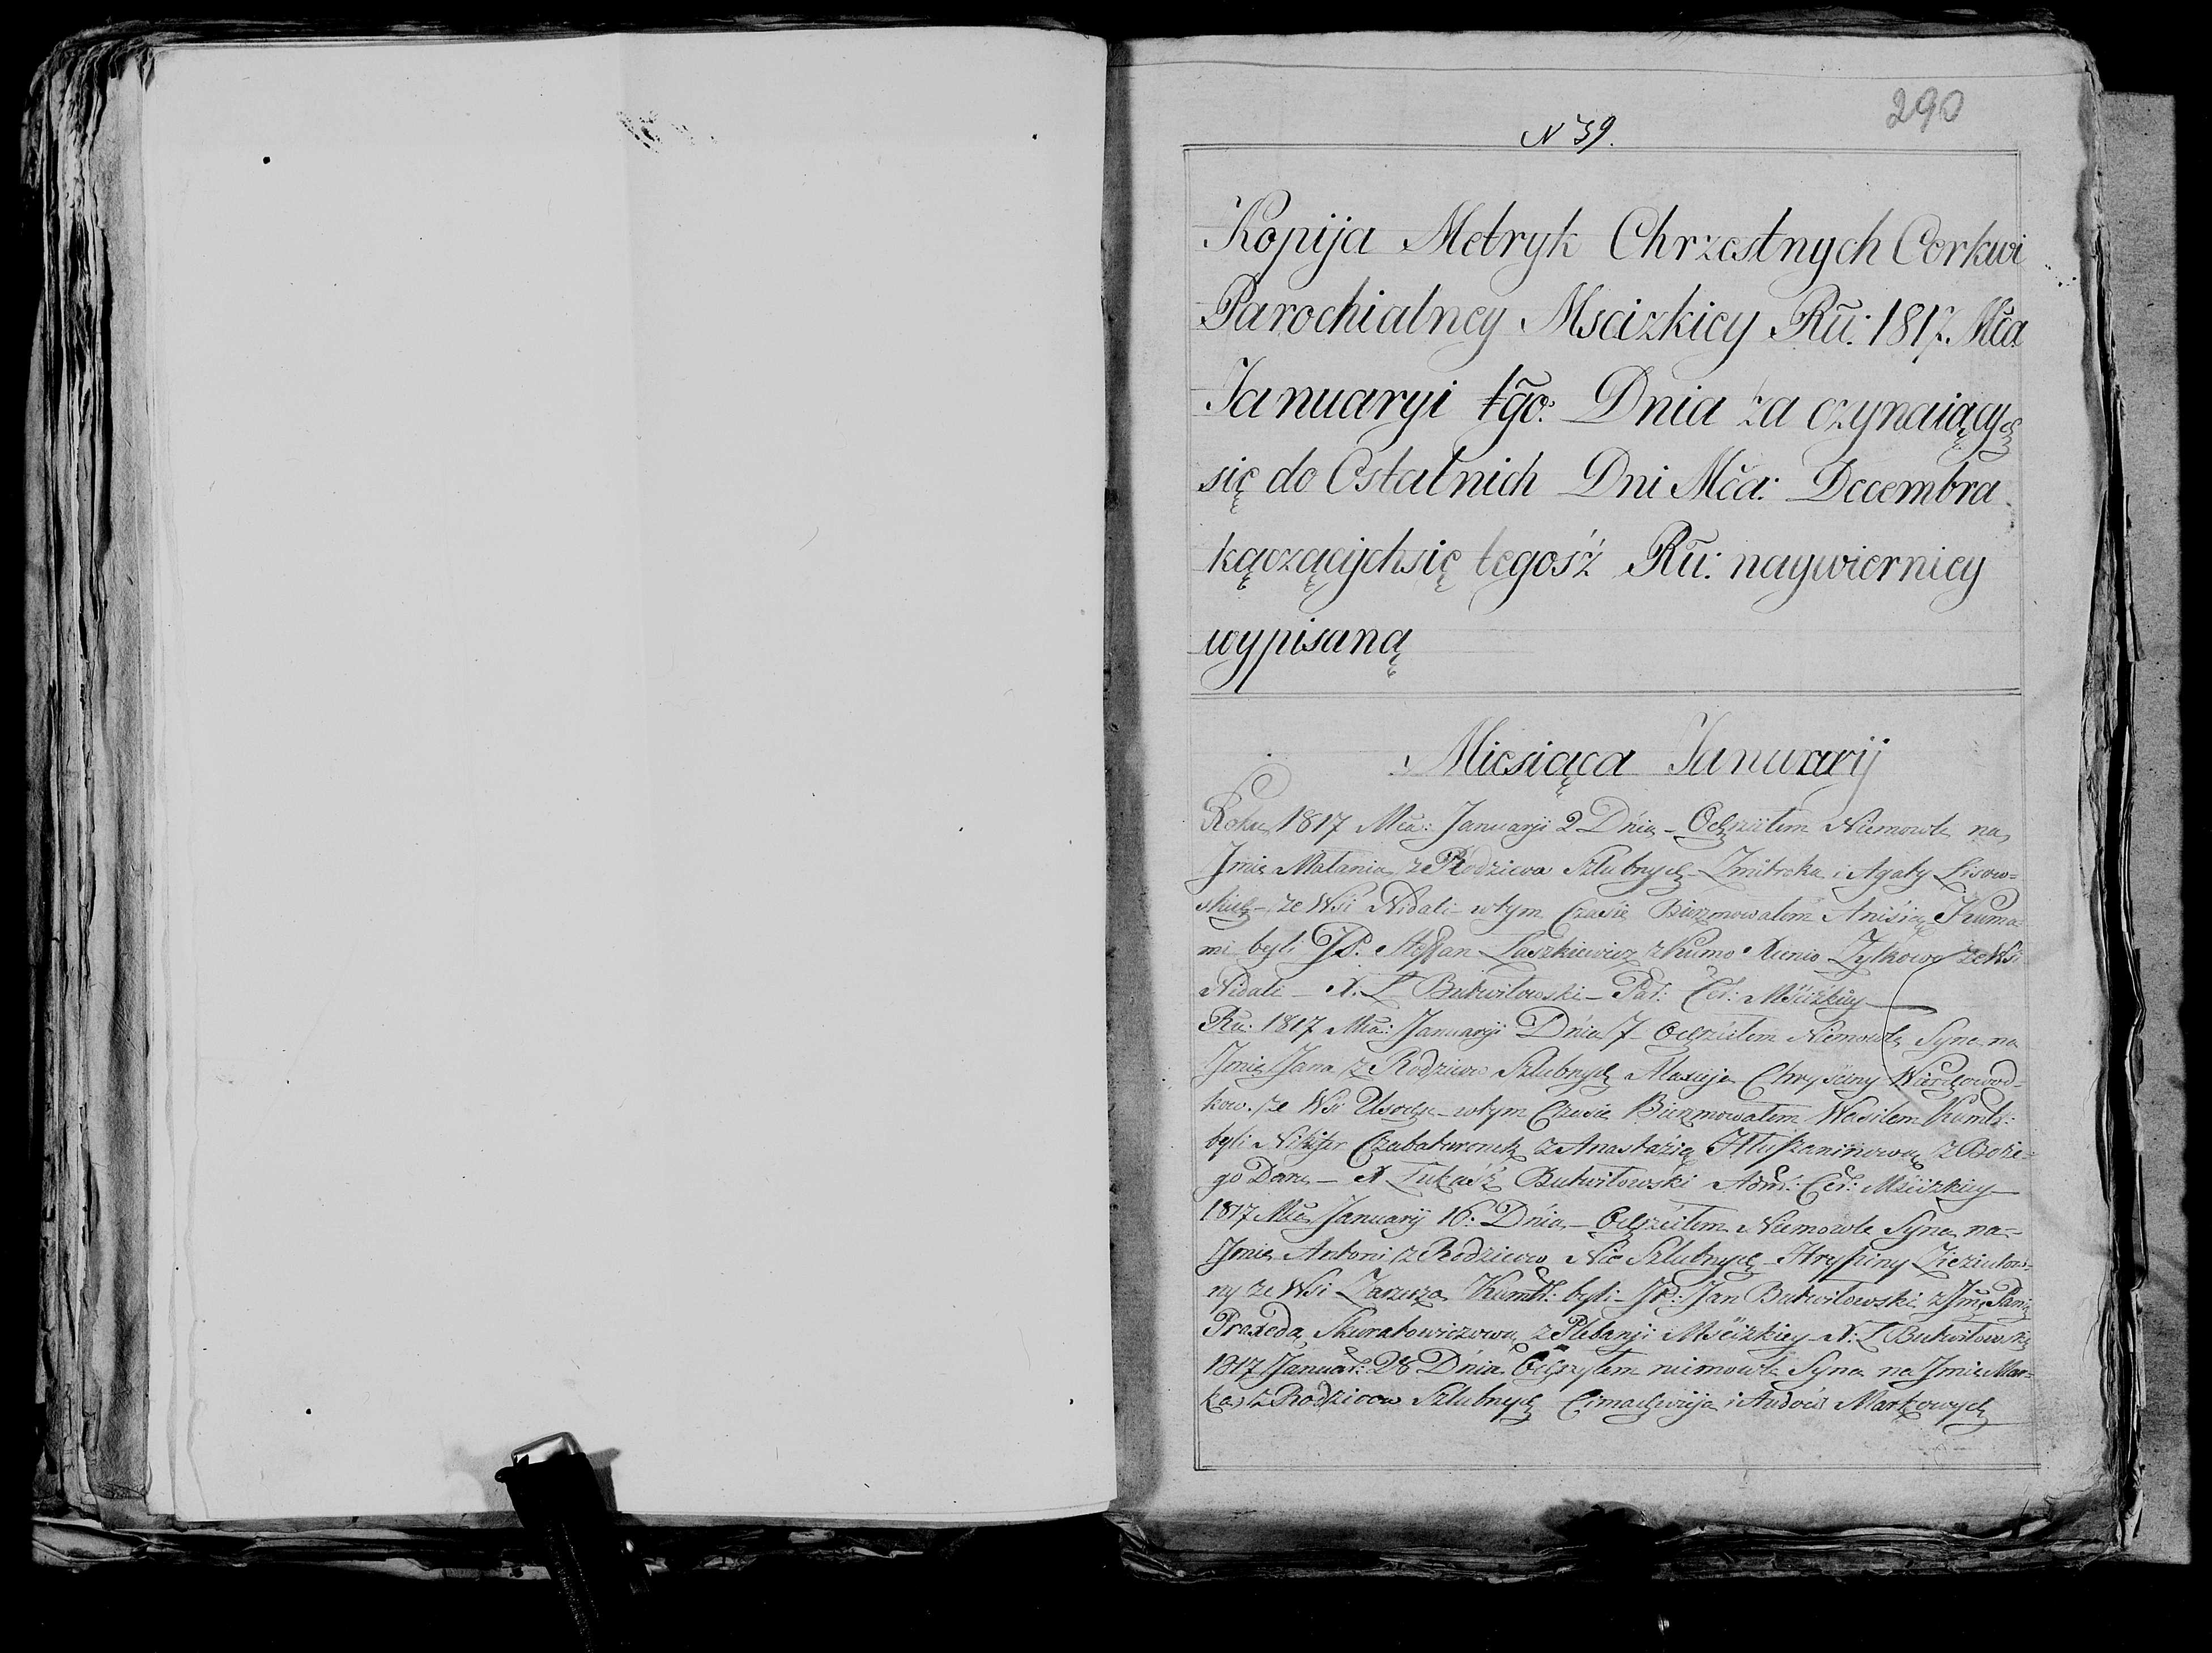 290
N 39.
Kopija Metryk Chrzestnych Cerkwi
Parochialney Mscizkiey Rũ: 1817. Mča
Januaryi 1go: Dnia za czynaiących
się do Ostatnich Dni Mča: Decembra
kączącychsię tegosź Rũ: naywierniey
wypisaną
Miesiąca Januarij
Roku 1817 Mča: Januarji 2 Dnia - Ochrzcilem Niemowle na
Jmie Malania z Rodzicow Szlubnych Zmitroka i Agaty Lisow=
skich - ze Wsi Nidali - wtym Czasie Bierzmowalem Anisią Kuma-
mi byli JP. Steffan Laszkiewicz z Kumo Xenio Zylkowo ze Wsi
Nidali - X. L Butwilowski - Par: Cer: Mścizkiey
Ru: 1817 Mča: Januarji Dnia 7 Ochrzcilem Niemowle Syna na
Jmie Jana z Rodzicow Szlubnych Alaxieja Chryściny
kow. ze Wsi - wtym Czasie Bierzmowalem Wasilem
byli z Anastazią z Boże-
go Daru - X Lukasź Butwilowski Adm: Cer: Mścizkiey
1817 Mča Januarij 16: Dnia - Ochrzcilem Niemowle Syna na-
Jmie Antoni z Rodzicow Nie Szlubnych - Hrypiny
ny ze Wsi byli - JP: Jan Butwilowski z Panią
Praxeda Skuratowiczowa z Plebanji Mścizkiey - X: L Butwilowski
1817 Januar: 28 Dnia Ochrzcylem niemowle Syna na Jmie Mar-
ka z Rodzicow Szlubnych i Markowych